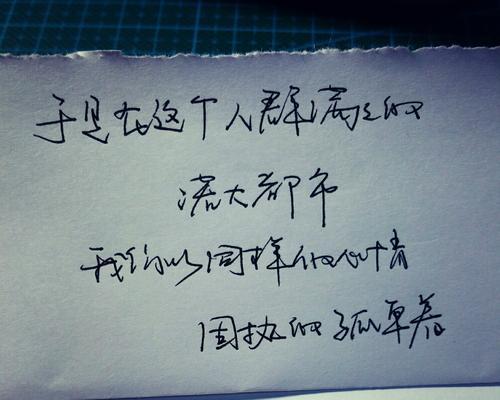 于是在这个人群满满的
偌大都市
我们以同样的心情
固执的孤单着